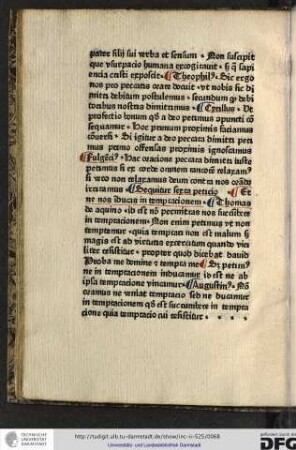 pater filij sui verba et sensum · Non suscipit
que vsurpacio humana excogitauit · sz qd sapi
encia cristi exposuit · Theophil9 · Sic ergo
nos pro peccatis orare docuit · vt nobis sic di
mitti debitum postulemus · secundum qd debi
toribus nostris dimittimus · Cirillus · Ut
profectio bonum qd a deo petimus
sequamur · Hoc primum proximis faciamus
Si igitur a deo peccata dimitti peti
mus primo offensas proximis ignoscamus
Fulgēci9 · Hac oracione peccata dimitti iuste
petimus si ex corde omnem rancorem relaxam9
si vero non relaxamus deum contra nos orādo
irritamus · Sequitur sexta peticio · Et
ne nos inducas in temptacionem · Thomas
de aquino · id est nō permittas nos succūbere
in temptacionem · Non enim petimus vt non
temptemur · quia temptari non est malum sz
magis est ad virtutis exercitium quando viri
liter resistitur · propter quod dicebat dauid
Proba me domine et tempta me · Sz petim9
ne in temptacionem inducamur id est ne ab
ipsa temptacione vincamur · Augustin9 · Nō
oramus ne veniat temptacio sed ne ducamur
in temptacionem qd est succumbere in tempta
cione quia temptacio cui resistitur ·
TECHNISCHE
UNIVERSITÄT
DARMSTADT
http://tudigit.ulb.tu-darmstadt.de/show/inc-ii-525/0068
Universitäts- und Landesbibliothek Darmstadt
gefördert durch die
DFG